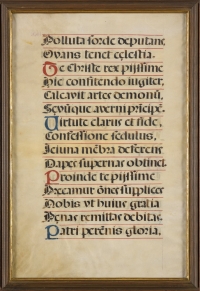 Polluta sorde deputans,
Ovans tenet cęlestia.
Te Christe rex pijssime
Hic confitendo iugiter,
Calcavit artes demonū,
Sevūque averni prīcipē.
Virtute clarus et fide,
Confessione sedulus,
Ieiuna mēbra deferens
Dapes supernas obtinet.
Proinde te pijssime
Precamur ōnes supplices
Nobis vt huius gratia
Penas remittas debitas.
Patri perēnis gloria,